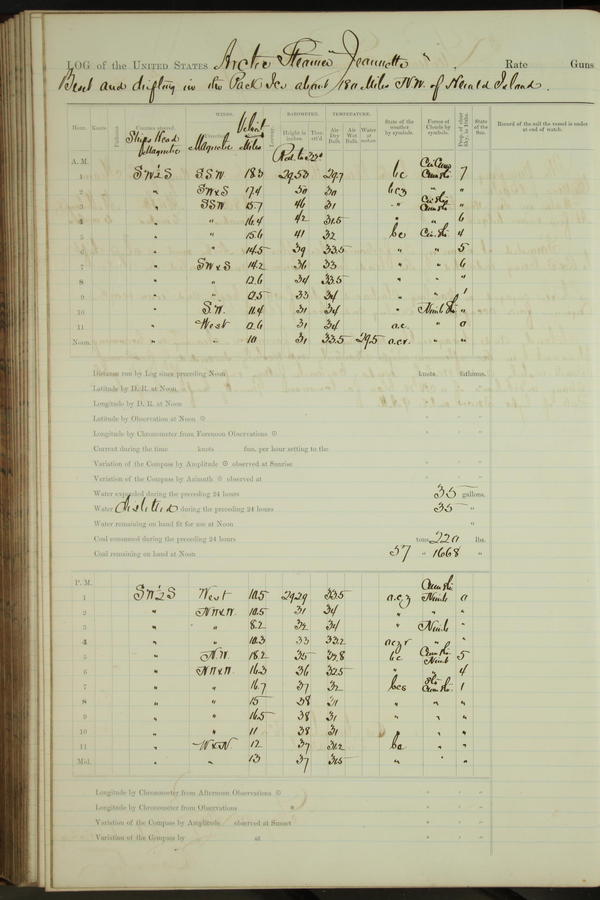 LOG of the UNITED STATES Arctic Steamer "Jeannette" Rate Guns
Beset and drifting in the Pack Ice about 180 Miles N.W. of Herald Island.
WINDS. BAROMETER. TEMPERATURE.
Hour. Knots. Fathoms. Courses steered. Ships Head Magnetic Magnetic Velocity Miles Height in inches. Ther. att'd Air Dry Bulb. Air Wet Bulb. Water at surface. State of the weather by symbols. Forms of Clouds by symbols. State of the Sea. Record of the sail the vessel is under at end of watch.
Red. to 32°
A. M.
1 SW½S SSW 18.3 29.50 29.7 bc Cum Sti 7
2 " SW&S 17.4 50 30 bcz " "
3 " SSW 15.7 46 31 " Cum Sti "
4 " " 16.4 42 31.5 " " 6
5 " " 15.6 41 32 bc Cir. Sti 4
6 " " 14.5 39 33.5 " " 5
7 " SW&S 14.2 36 33 " " 6
8 " " 12.6 34 33.5 " "
9 " " 12.5 33 34 " " 1
10 " S.W. 11.4 31 34 " Nimb Sti "
11 " West 12.6 31 34 o.c. " 0
Noon. " " 10 31 33.5 29.5 o.c.r. " "
Distance run by Log since preceding Noon knots. fathoms.
Latitude by D. R. at Noon
Longitude by D. R. at Noon
Latitude by Observation at Noon ☉
Longitude by Chronometer from Forenoon Observations ☉
Current during the time knots fms. per hour setting to the
Variation of the Compass by Amplitude ☉ observed at Sunrise
Variation of the Compass by Azimuth ☉ observed at
Water expended during the preceding 24 hours 35 gallons.
Water distilled during the preceding 24 hours 35 "
Water remaining on hand fit for use at Noon "
Coal consumed during the preceding 24 hours tons 220 lbs.
Coal remaining on hand at Noon 57 " 1668 "
P. M.
1 SW½S West 10.5 29.29 33.5 o.c.z Cum Sti Nimb 0
2 " NW&W 10.5 31 34 " " "
3 " " 8.2 32 34 " Nimb "
4 " " 10.3 33 33.2 oczr " "
5 " N.W. 18.2 35 32.8 bc Cum Sti Nimb 5
6 " NW&W 16.3 36 32.5 " " 4
7 " " 16.7 37 32 bcs Sti Cum Sti 1
8 " " 15 38 31 " " "
9 " " 16.5 38 31 " " "
10 " " 11 38 31 " " "
11 " W&N 12 37 31.2 " "
Mid. " " 13 37 31.5 " "
Longitude by Chronometer from Afternoon Observations ☉
Longitude by Chronometer from Observations
Variation of the Compass by Amplitude observed at Sunset
Variation of the Compass by at